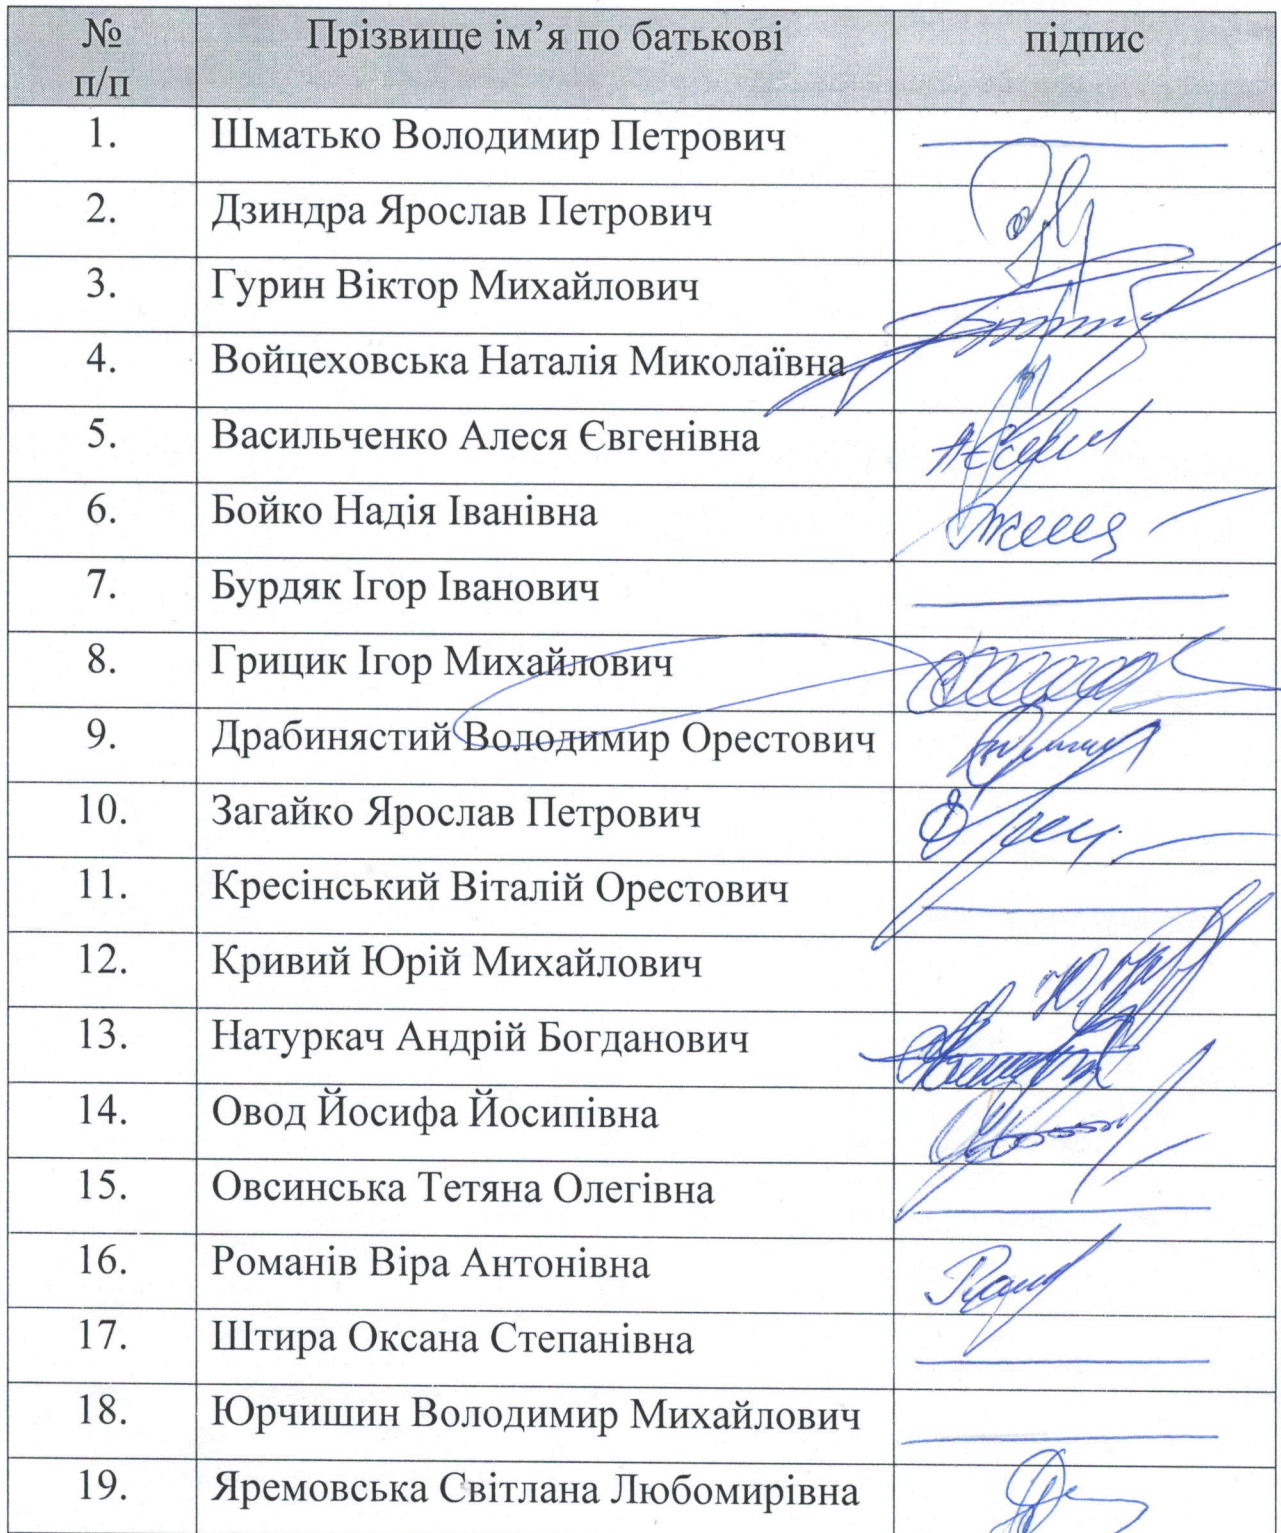 № п/п Прізвище ім’я по батькові підпис
1. Шматько Володимир Петрович
2. Дзиндра Ярослав Петрович
3. Гурин Віктор Михайлович
4. Войцеховська Наталія Миколаївна
5. Васильченко Алеся Євгенівна
6. Бойко Надія Іванівна
7. Бурдяк Ігор Іванович
8. Грицик Ігор Михайлович
9. Драбинястий Володимир Орестович
10. Загайко Ярослав Петрович
11. Кресінський Віталій Орестович
12. Кривий Юрій Михайлович
13. Натуркач Андрій Богданович
14. Овод Йосифа Йосипівна
15. Овсинська Тетяна Олегівна
16. Романів Віра Антонівна
17. Штира Оксана Степанівна
18. Юрчишин Володимир Михайлович
19. Яремовська Світлана Любомирівна